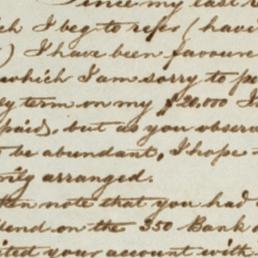 Since my last
I beg to refer (have
) I have been favoure
which I am sorry to pe
term on my $20,000 In
paid, but as you observ
be abundant, I hope
arranged.
note that you had
end on the 350 Bank
ited your account with